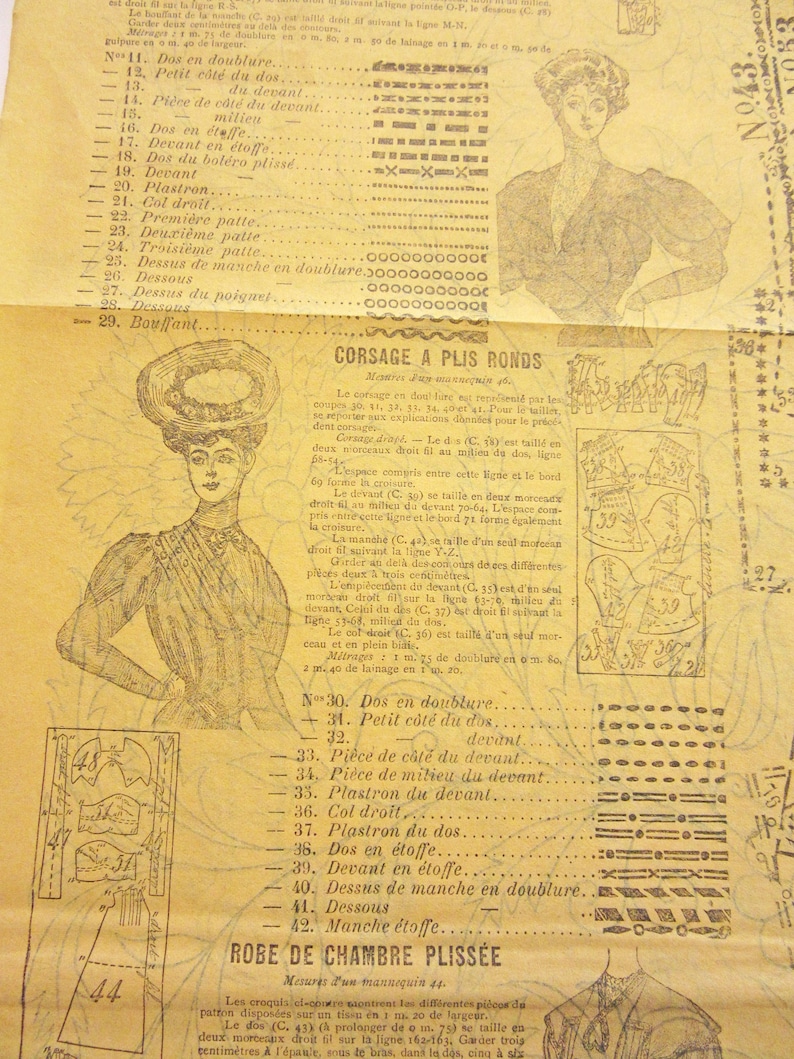 est droit fil sur la ligne R-S.
Le bouffant de la manche (C. 29) est taillé droit fil suivant la ligne M-N.
Garder deux centimètres au delà des contours.
Métrages : 1 m. 75 de doublure en 0 m. 80, 2 m. 50 de lainage en 1 m. 20 et 0 m. 50 de
guipure en 0 m. 40 de largeur.
Nos 11. Dos en doublure
— 12. Petit côté du dos
— 13. — du devant
— 14. Pièce de côté du devant
— 15. — milieu —
— 16. Dos en étoffe
— 17. Devant en étoffe
— 18. Dos du boléro plissé
— 19. Devant —
— 20. Plastron
— 21. Col droit
— 22. Première patte
— 23. Deuxième patte
— 24. Troisième patte
— 25. Dessus de manche en doublure
— 26. Dessous —
— 27. Dessus du poignet
— 28. Dessous —
— 29. Bouffant
CORSAGE A PLIS RONDS
Mesures d'un mannequin 46.
Le corsage en doublure est représenté par les
coupes 30, 31, 32, 33, 34, 40 et 41. Pour le tailler,
se reporter aux explications données pour le précé-
dent corsage.
Corsage drapé. — Le dos (C. 38) est taillé en
deux morceaux droit fil au milieu du dos, ligne
68-54.
L'espace compris entre cette ligne et le bord
69 forme la croisure.
Le devant (C. 39) se taille en deux morceaux
droit fil au milieu du devant 70-64. L'espace com-
pris entre cette ligne et le bord 71 forme également
la croisure.
La manche (C. 42) se taille d'un seul morceau
droit fil suivant la ligne Y-Z.
Garder au delà des contours de ces différentes
pièces deux à trois centimètres.
L'empiècement du devant (C. 35) est d'un seul
morceau droit fil sur la ligne 63-70, milieu du
devant. Celui du dos (C. 37) est droit fil suivant la
ligne 53-68, milieu du dos.
Le col droit (C. 36) est taillé d'un seul mor-
ceau et en plein biais.
Métrages : 1 m. 75 de doublure en 0 m. 80,
2 m. 40 de lainage en 1 m. 20.
Nos 30. Dos en doublure
— 31. Petit côté du dos
— 32. — devant
— 33. Pièce de côté du devant
— 34. Pièce de milieu du devant
— 35. Plastron du devant
— 36. Col droit
— 37. Plastron du dos
— 38. Dos en étoffe
— 39. Devant en étoffe
— 40. Dessus de manche en doublure
— 41. Dessous —
— 42. Manche étoffe
ROBE DE CHAMBRE PLISSÉE
Mesures d'un mannequin 44.
Les croquis ci-contre montrent les différentes pièces du
patron disposées sur un tissu en 1 m. 20 de largeur.
Le dos (C. 43) (à prolonger de 0 m. 75) se taille en
deux morceaux droit fil sur la ligne 162-163. Garder trois
centimètres à l'épaule, sous le bras, dans le dos, cinq à six
No 43.
38
27
38
38
39
42
39
36
48
44